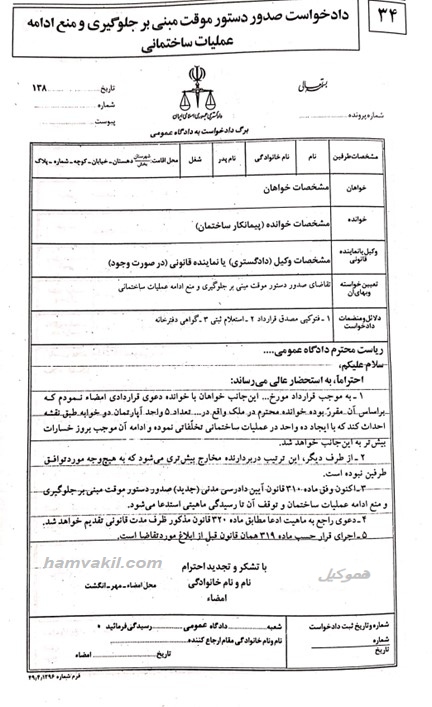 ۳۴
دادخواست صدور دستور موقت مبنی بر جلوگیری و منع ادامه
عملیات ساختمانی
بسمتعالی
تاریخ ۱۳۸
شماره
پیوست
شماره پرونده
دادگستری جمهوری اسلامی ایران
برگ دادخواست به دادگاه عمومی
مشخصات طرفین نام نام خانوادگی نام پدر شغل محل اقامت: شهرستان بخش دهستان - خیابان - کوچه - شماره - پلاک
خواهان مشخصات خواهان
خوانده مشخصات خوانده (پیمانکار ساختمان)
وکیل یا نماینده قانونی مشخصات وکیل (دادگستری) یا نماینده قانونی (در صورت وجود)
تعیین خواسته وبهای آن تقاضای صدور دستور موقت مبنی بر جلوگیری و منع ادامه عملیات ساختمانی
دلائل و منضمات دادخواست ۱ - فتوکپی مصدق قرارداد ۲ - استعلام ثبتی ۳ - گواهی دفترخانه
ریاست محترم دادگاه عمومی....
سلام علیکم،
احتراماً، به استحضار عالی می‌رساند:
۱ - به موجب قرارداد مورخ... این‌جانب خواهان با خوانده دعوی قراردادی امضاء نمودم که
براساس آن مقرر بوده خوانده محترم در ملک واقع در.... تعداد ۵ واحد آپارتمان دو خوابه طبق نقشه
احداث کند که با ایجاد ده واحد در عملیات ساختمانی تخلّفاتی نموده و ادامه آن موجب بروز خسارات
بیش‌تر به این‌جانب خواهد شد.
۲ - از طرف دیگر، این ترتیب دربردارنده مخارج بیش‌تری می‌شود که به هیچ‌وجه مورد توافق
طرفین نبوده است.
۳-اکنون وفق ماده ۳۱۰ قانون آیین دادرسی مدنی (جدید) صدور دستور موقت مبنی بر جلوگیری
و منع ادامه عملیات ساختمان و توقف آن تا رسیدگی ماهیتی استدعا می‌شود.
۴-دعوی راجع به ماهیت ادعا مطابق ماده ۳۲۰ قانون مذکور ظرف مدت قانونی تقدیم خواهد شد.
۵ - اجرای قرار حسب ماده ۳۱۹ همان قانون قبل از ابلاغ مورد تقاضا است.
با تشکر و تجدید احترام
نام و نام خانوادگی
امضاء
محل امضاء - مهر - انگشت
hamvakil.com
هموکیل
شماره و تاریخ ثبت دادخواست
شماره
تاریخ
شعبه دادگاه عمومی رسیدگی فرمائید
نام و نام خانوادگی مقام ارجاع کننده
تاریخ امضاء
فرم شماره ۴۹/۴/۱۳۹۶